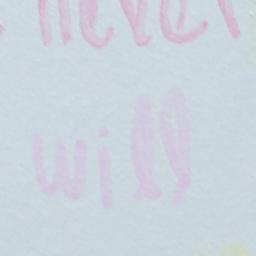 never
will